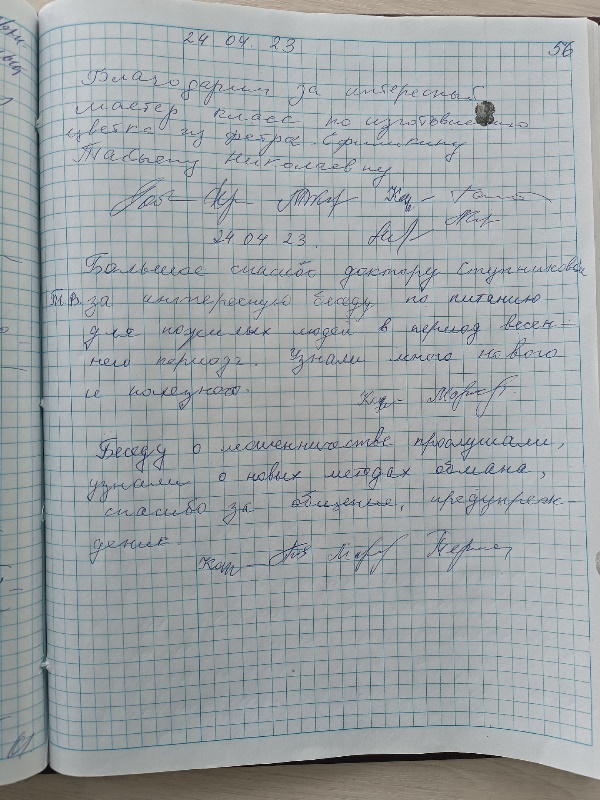 24 04. 23
56
Благодарим за интересный
мастер класс по изготовлению
цветка из фетра.
Татьяну Николаевну
24 04 23.
Большое спасибо доктору Ступниковой
Т.В. за интересную беседу по питанию
для пожилых людей в период весен-
него периода. Узнали много нового
и полезного.
Беседу о мошенничестве прослушали,
узнали о новых методах обмана,
спасибо за общение, предупреж-
дения.